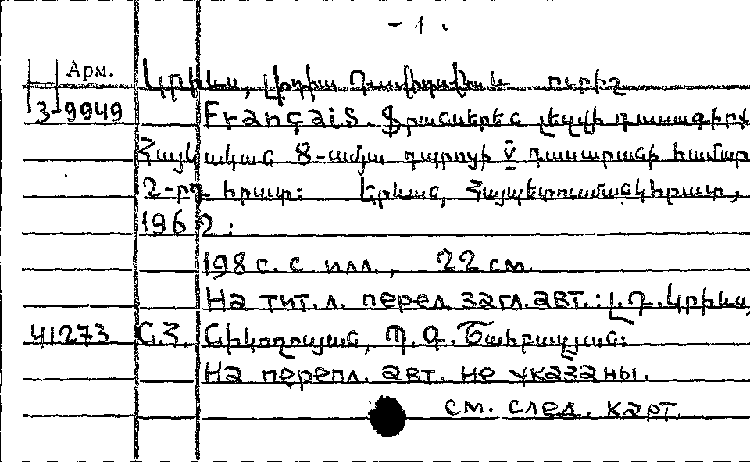 - 1 .
Арм. Կրիևս, Լիդիա Դավիդովնա և ուրիշ
3-9949 Français. Ֆրանսերեն լեզվի դասագիրք
Հայկական 8-ամյա դպրոցի V դասարանի համար
2-րդ հրատ: Երևան, Հայպետուսմանկհրատ,
1962:
198 с. с илл., 22 см
На тит. л. перед загл. авт.: Լ.Դ. Կրիևս,
41273 Ն.Հ. Նիկողոսյան, Պ.Գ.
На перепл. авт. не указаны.
см. след. карт.